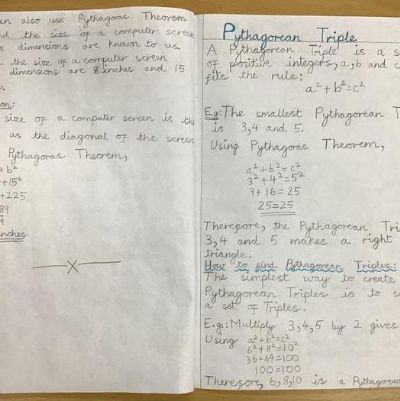 an also use Pythagoras Theorem
d the size of a computer screen
s dimensions are known to us.
the size of a computer screen
dimensions are 8 inches and 15
s.
on:
size of a computer screen is the
as the diagonal of the screen
Pythagoras Theorem,
+b²
+15²
+225
89
inches
Pythagorean Triple
A Pythagorean Triple is a s
of positive integers, a, b and c
fits the rule:
a²+b²=c²
E.g: The smallest Pythagorean T
is 3,4 and 5.
Using Pythagoras Theorem,
a²+b²=c²
3²+4²=5²
9+16=25
25=25
Therefore, the Pythagorean Tri
3,4 and 5 makes a right
triangle.
How to find Pythagorean Triples:
The simplest way to create
Pythagorean Triples is to s
a set of Triples.
E.g: Multiply 3,4,5 by 2 gives
Using a²+b²=c²
6²+8²=10²
36+64=100
100=100
Therefore, 6,8,10 is a Pythagorean